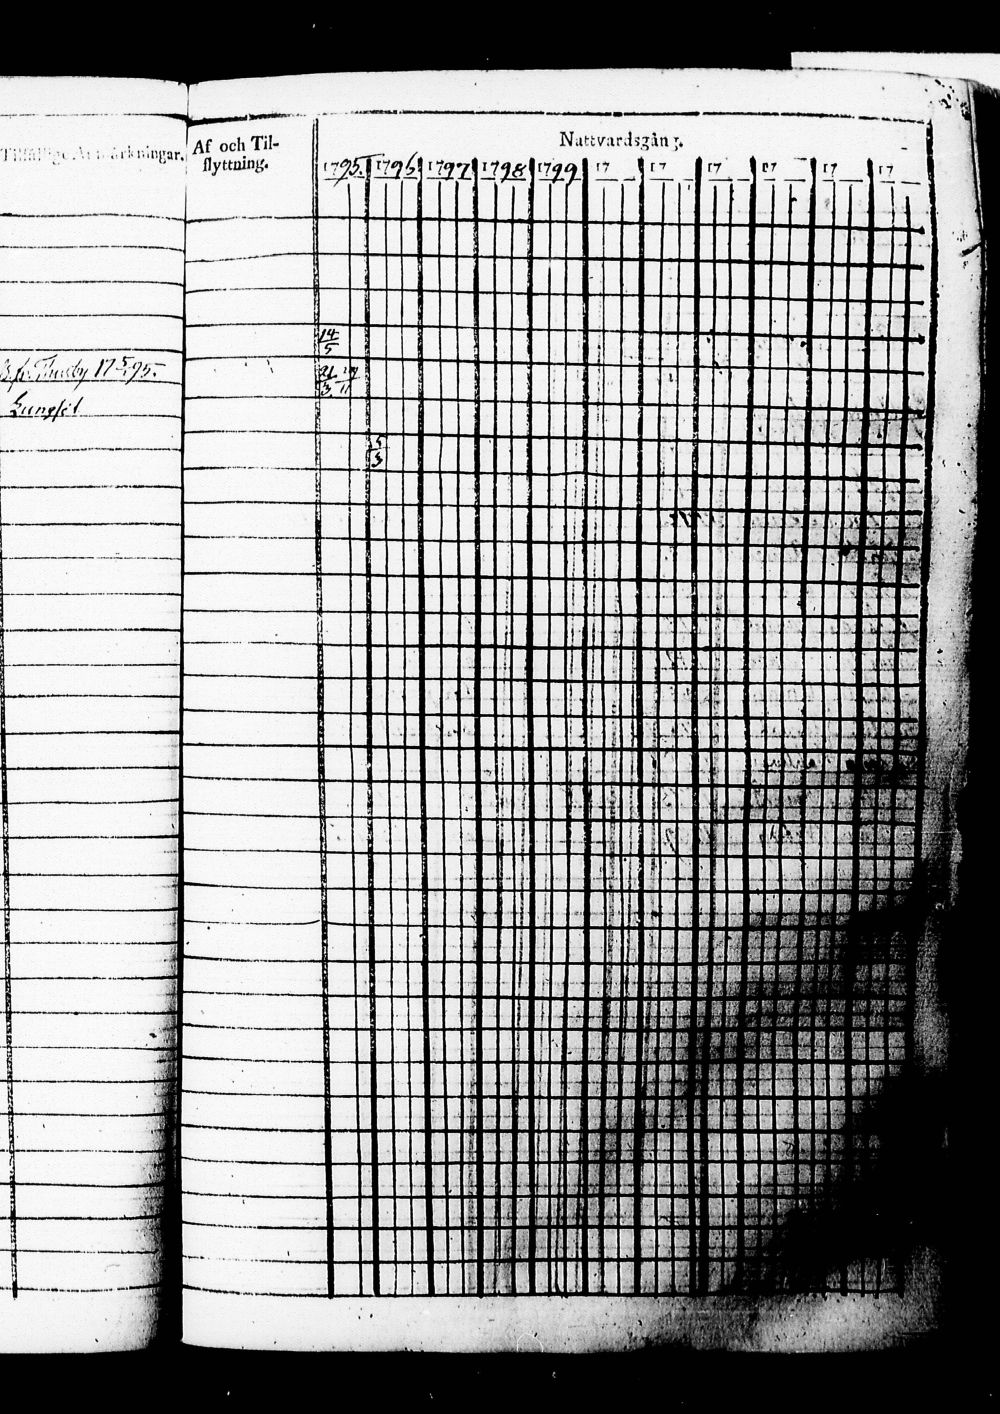 Tilfällige Anmärkningar.
Af och Til-
flyttning.
Nattvardsgång.
1795. 1796 1797 1798 1799 17 17 17 17 17 17
14/5
17 5/ 95.
21/3
5/3